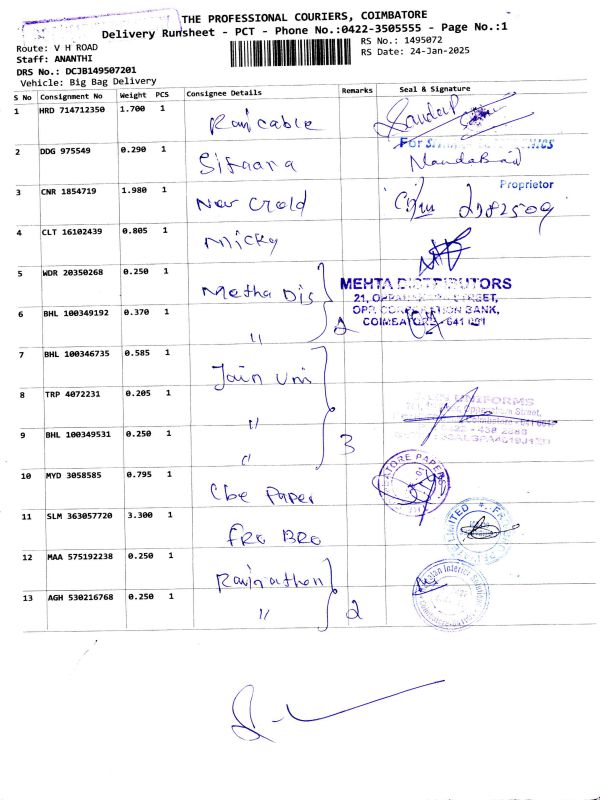 THE PROFESSIONAL COURIERS, COIMBATORE
Delivery Runsheet - PCT - Phone No.:0422-3505555 - Page No.:1
Route: V H ROAD
RS No.: 1495072
Staff: ANANTHI
RS Date: 24-Jan-2025
DRS No.: DCJB149507201
Vehicle: Big Bag Delivery
S No Consignment No Weight PCS Consignee Details Remarks Seal & Signature
1 HRD 714712350 1.700 1
2 DDG 975549 0.290 1 Sitaara
For
3 CNR 1854719 1.980 1 New Crold
Proprietor
4 CLT 16102439 0.805 1 Micky
5 WDR 20350268 0.250 1 Metha Dis
MEHTA DISTRIBUTORS
6 BHL 100349192 0.370 1 " 2
21, OPPANAKARA STREET,
OPP. CORPORATION BANK,
COIMBATORE - 641 001
7 BHL 100346735 0.585 1 Jain Uni
8 TRP 4072231 0.205 1 "
UNIFORMS
9 BHL 100349531 0.250 1 " 3
10 MYD 3058585 0.795 1 Cbe Paper
11 SLM 363057720 3.300 1
12 MAA 575192238 0.250 1
13 AGH 530216768 0.250 1 " 2